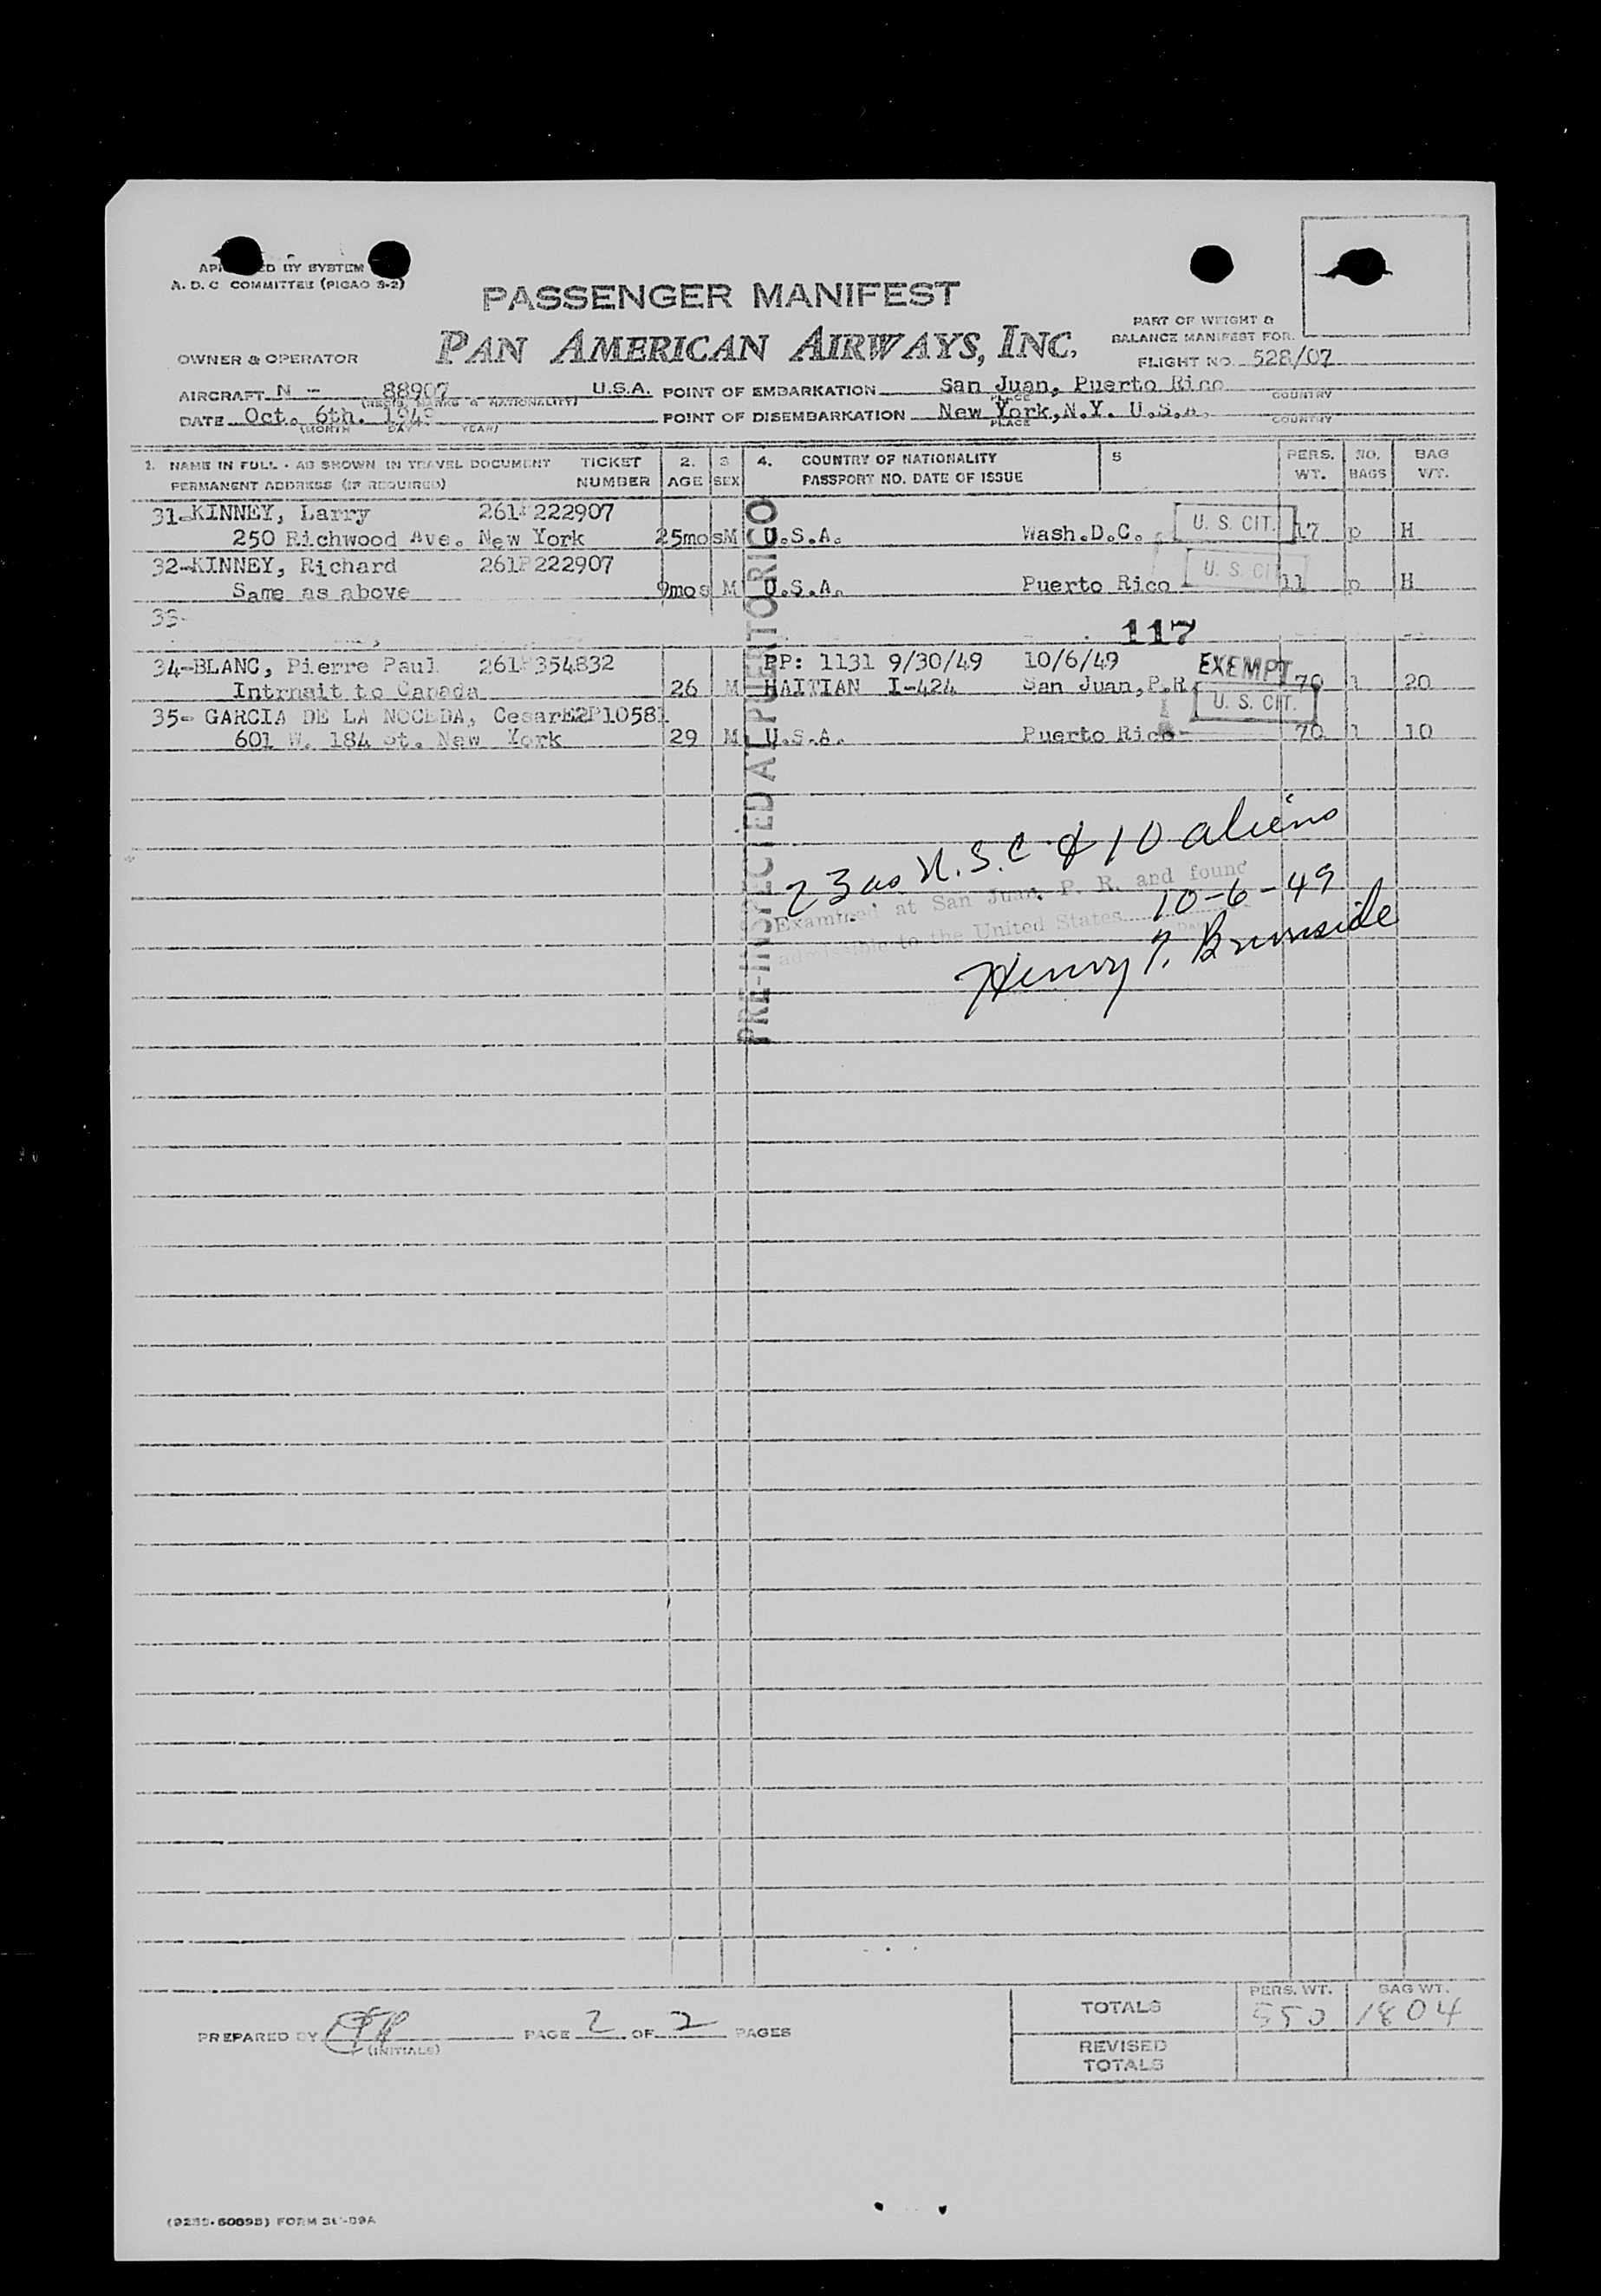 ED BY SYSTEM
A. D. C COMMITTEE (PICAO S-2)
PASSENGER MANIFEST
PAN AMERICAN AIRWAYS, INC.
PART OF WEIGHT &
BALANCE MANIFEST FOR
OWNER & OPERATOR
FLIGHT NO. 528/07
AIRCRAFT N - 88907 U.S.A. POINT OF EMBARKATION San Juan, Puerto Rico
(REGIS. MARKS & NATIONALITY) PLACE COUNTRY
DATE Oct. 6th. 1949 POINT OF DISEMBARKATION New York,N.Y. U.S.A.
(MONTH DAY YEAR) PLACE COUNTRY
1. NAME IN FULL - AS SHOWN IN TRAVEL DOCUMENT TICKET 2. 3 4. COUNTRY OF NATIONALITY 5 PERS. NO. BAG
PERMANENT ADDRESS (IF REQUIRED) NUMBER AGE SEX PASSPORT NO. DATE OF ISSUE WT. BAGS WT.
31-KINNEY, Larry 261P222907
250 Richwood Ave. New York 25mos M U.S.A. Wash.D.C. U. S. CIT. 17 p H
32-KINNEY, Richard 261P222907
Same as above 9mos M U.S.A. Puerto Rico U. S. CI 11 p H
33-
117
34-BLANC, Pierre Paul 261P354832 PP: 1131 9/30/49 10/6/49 EXEMPT
Intrnsit to Canada 26 M HAITIAN I-424 San Juan,P.R. 70 1 20
35- GARCIA DE LA NOCEDA, Cesar E2P10581 U. S. CIT.
601 W. 184 St. New York 29 M U.S.A. Puerto Rico 70 1 10
PRE-INSPECTED AT PUERTO RICO
23 as U.S.C & 10 aliens
Examined at San Juan, P. R. and found
10-6-49
admissible to the United States
Date
Henry T. Burnside
TOTALS PERS. WT. 550 BAG WT. 1804
PREPARED BY (INITIALS) PAGE 2 OF 2 PAGES
REVISED
TOTALS
FORM